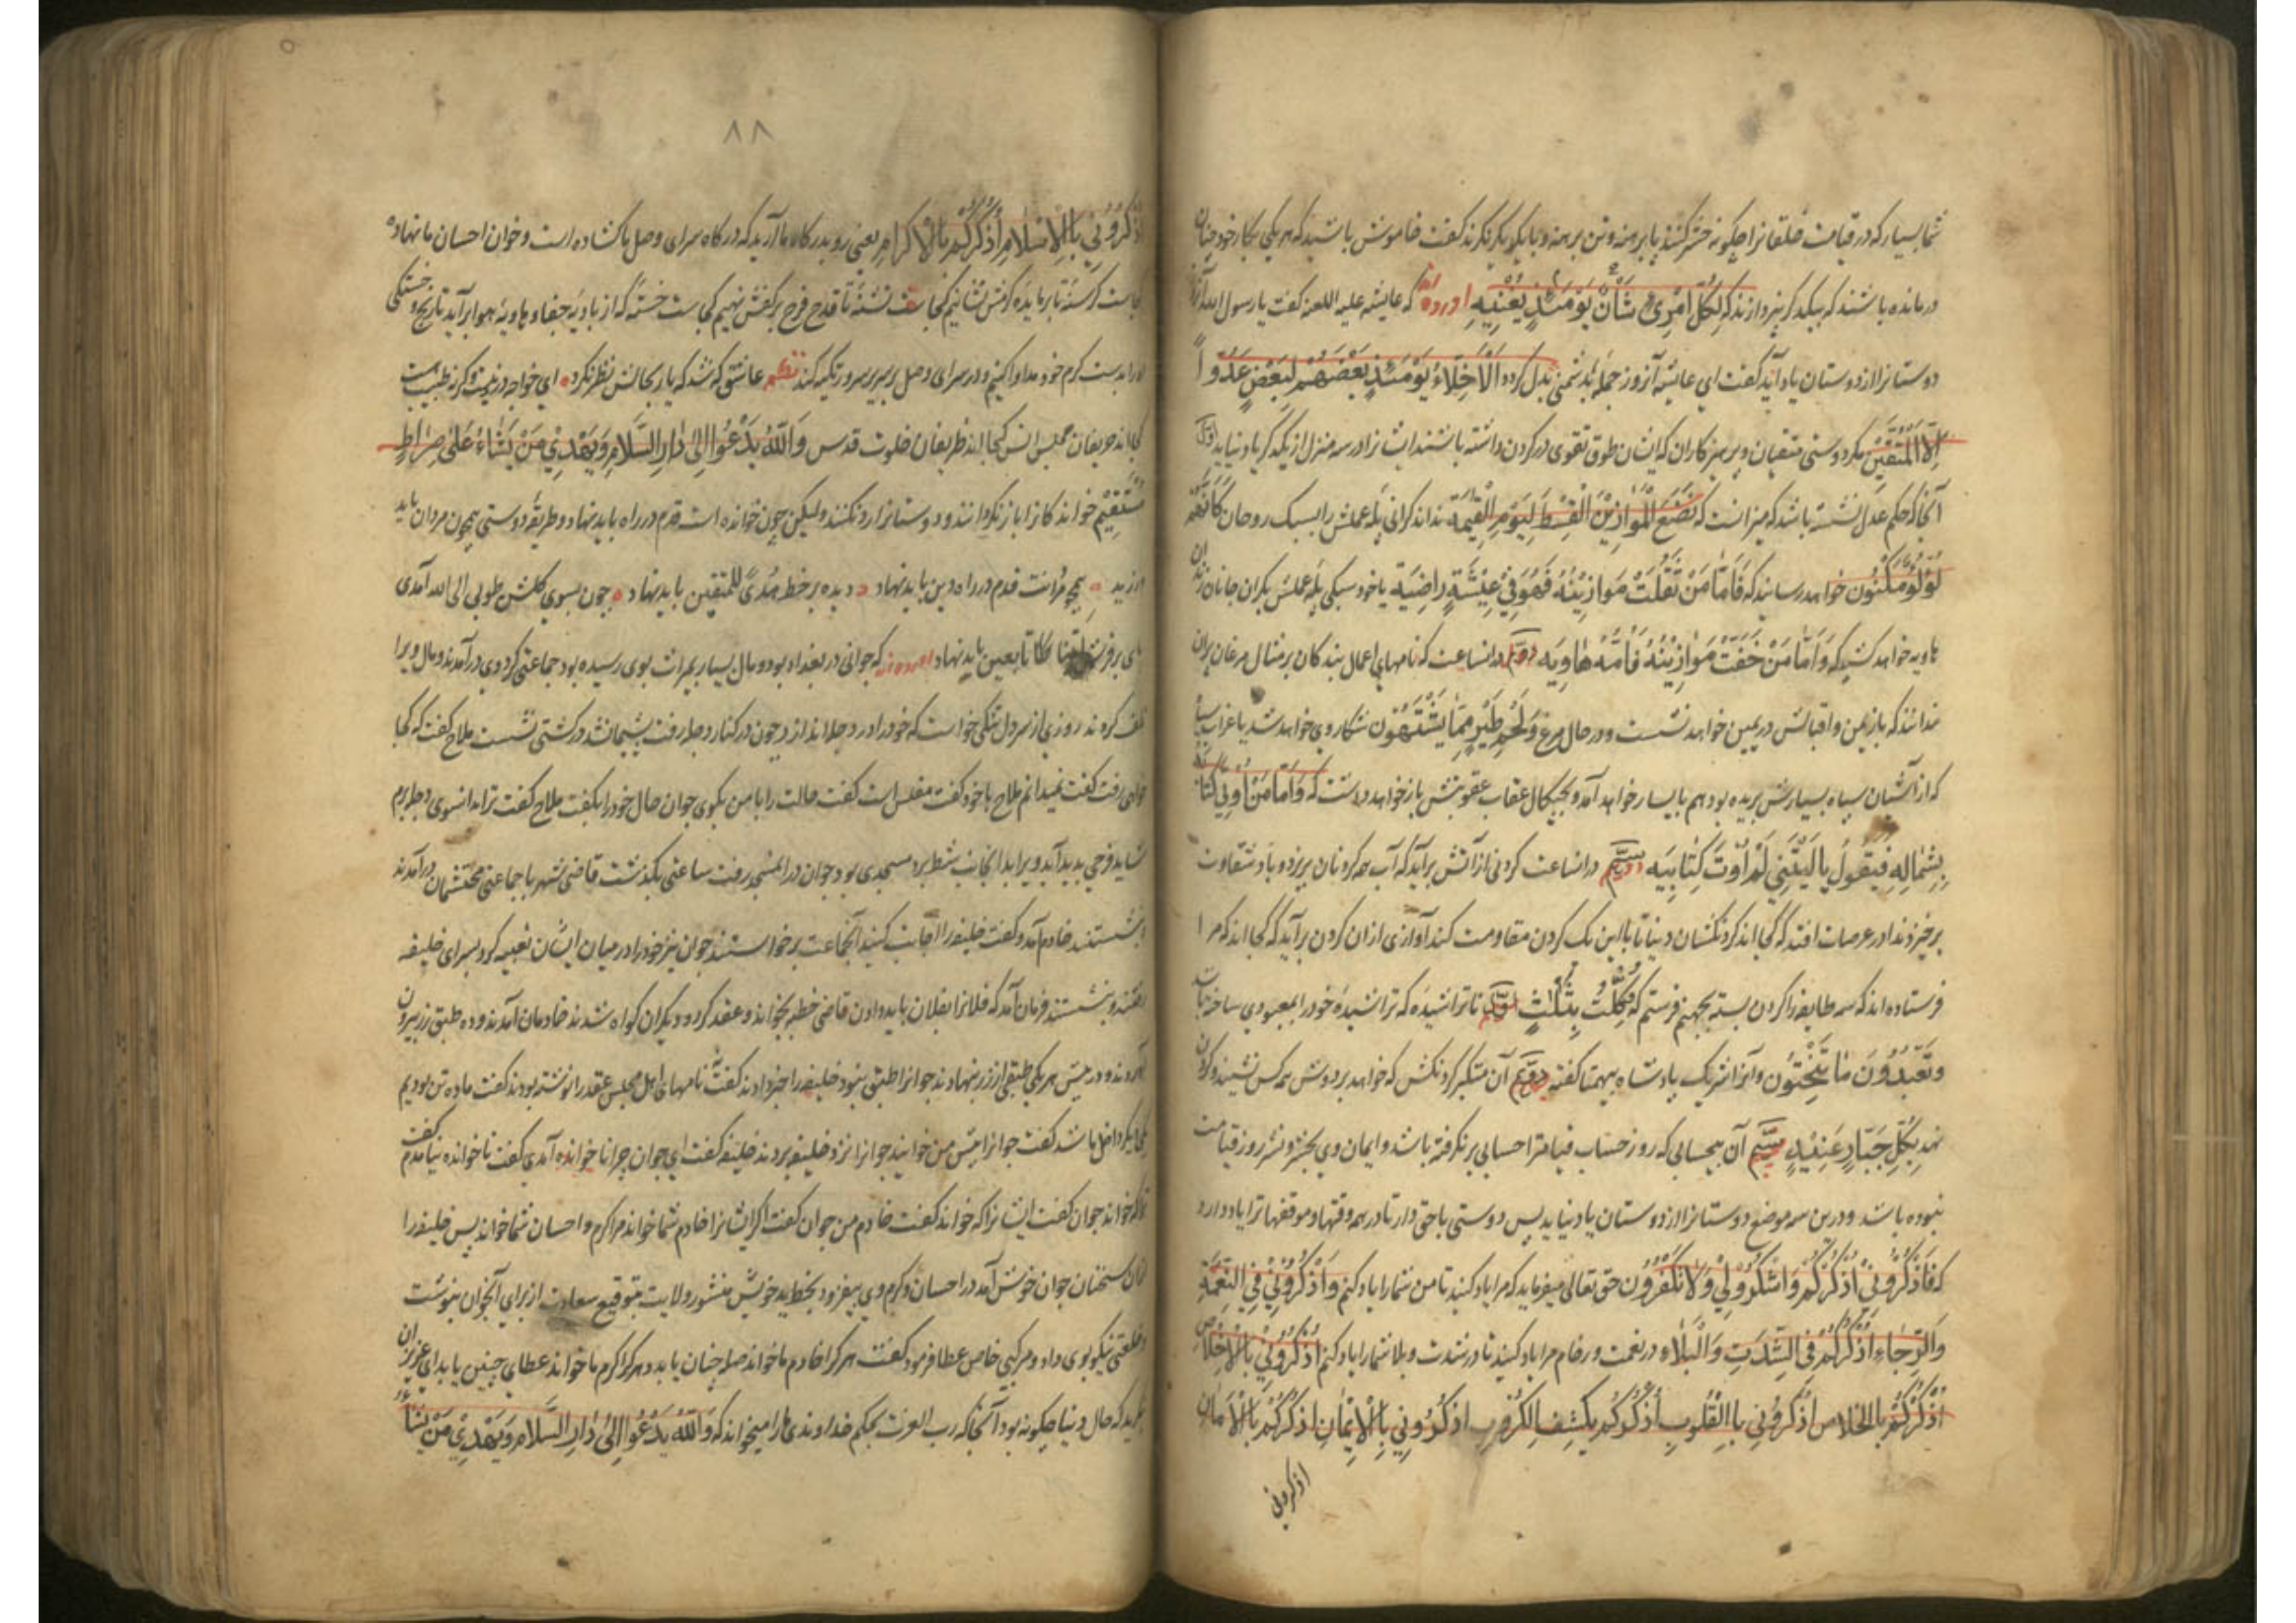 شما بسیار که در قیامت خلقانرا چگونه حشر کنند پا برهنه و تن برهنه و با یکدیگر نگرند گفت خاموش باشید که هر یکی بکار خود چنان
درمانده باشند که بیکدیگر نپردازند که لِكُلِّ امْرِئٍ شَأْنٌ يَوْمَئِذٍ يُغْنِيهِ آورده که عایشه علیه اللعنه گفت یا رسول الله آنروز
دوستانرا از دوستان یاد آید گفت ای عایشه آنروز جمله بدشمنی بدل گردد اَلْاَخِلَّاءُ يَوْمَئِذٍ بَعْضُهُمْ لِبَعْضٍ عَدُوٌّ
اِلَّا الْمُتَّقِينَ مگر دوستی متقیان و پرهیزکاران که ایشان طوق تقوی در گردن داشته باشند ایشانرا در سه منزل از یکدیگر یاد نیاید اول
آنجا که حکم عدل نشسته باشد که میزانست که نَضَعُ الْمَوَازِينَ الْقِسْطَ لِيَوْمِ الْقِيمَةِ نداند که گرانی پله عملش را بسبک روحان كَاَنَّهُمْ
لُؤْلُؤٌ مَكْنُونٌ خواهد رسانید که فَاَمَّا مَنْ ثَقُلَتْ مَوَازِينُهُ فَهُوَ فِي عِيشَةٍ رَاضِيَةٍ یا خود سبکی پله عملش بگران جانان زندان
هاویه خواهد کشید که وَاَمَّا مَنْ خَفَّتْ مَوَازِينُهُ فَاُمُّهُ هَاوِيَه دوم در انساعت که نامهای اعمال بندگان بر مثال مرغان پران
ندانند که باز یمن و اقبالش در یمین خواهد نشست و در حال مرغ وَلَحْمِ طَيْرٍ مِمَّا يَشْتَهُون شکار وی خواهد شد یا غراب سیاه
که از آشیان سیاه بسیارش پریده بود هم بایسار خواهد آمد و بچنگال عقاب عقوبتش باز خواهد دست که وَاَمَّا مَنْ اُوتِيَ كِتَابَهُ
بِشِمَالِهِ فَيَقُولُ يَا لَيْتَنِي لَمْ اُوتَ كِتَابِيَه سیم در انساعت گردنی از آتش برآید که آب همه گردنان بریزد و باد شقاوت
برخیزد ندا در عرصات افتد که کجا اند گردنکشان دنیا تا با این یک گردن مقاومت کنند آوازی از ان گردن برآید که کجا اند که مرا
فرستاده اند که سه طایفه را گردن بسته بجهنم فرستم که وُكِّلْتُ بِثَلَاثٍ اول ناتراشیده که تراشیده خود را بمعبودی ساخته بات
وَتَعْبُدُونَ مَا تَنْحِتُون و آنرا شریک پادشاه بیهمتا گفته دوم آن متکبر گردنکش که خواهد بر دوش همه کس نشیند و گردن
نهد بِكُلِّ جَبَّارٍ عَنِيدٍ سیم آن بیحسابی که روز حساب قیامترا حسابی برنگرفته باشد و ایمان وی بحشر و نشر روز قیامت
نبوده باشد و درین سه موضع دوستانرا از دوستان یاد نیاید پس دوستی با حق دار تا در همه وقتها و موقفها ترا یاد دارد
که فَاذْكُرُونِي اَذْكُرْكُمْ وَاشْكُرُوا لِي وَلَا تَكْفُرُون حق تعالی میفرماید که مرا یاد کنید تا من شما را یاد کنم وَاذْكُرُونِي فِي النِّعْمَةِ
وَالرَّخَاءِ اَذْكُرْكُمْ فِي الشِّدَّةِ وَالْبَلَاءِ در نعمت و رفاه مرا یاد کنید تا در شدت و بلا شما را یاد کنم اُذْكُرُونِي بِالْاِخْلَاصِ
اَذْكُرْكُمْ بِالْخَلَاصِ اُذْكُرُونِي بِالْقُلُوبِ اَذْكُرْكُمْ بِكَشْفِ الْكُرُوبِ اُذْكُرُونِي بِالْاِيمَانِ اَذْكُرْكُمْ بِالْاَمَانِ
اذکرونی
٨٨
اُذْكُرُونِي بِالْاِسْلَامِ اَذْكُرْكُمْ بِالْاِكْرَامِ یعنی رو بدرگاه ما آرید که درگاه سرای وصل ما گشاده است و خوان احسان ما نهاده
کجاست گرسنه تا بر مایده کرمش نشانیم کجاست تشنه تا قدح فرح بر کفش نهیم کجاست خسته که از بادیه جفا و هاویه هوا برآید تا رنج و خستگی
او را بدست کرم خود مداوا کنیم و در سرای وصل بر سریر سرور تکیه کند نظم عاشق که شد که یار بحالش نظر نکرد ای خواجه درد نیست وگرنه طبیب هست
کجا اند حریفان مجلس انس کجا اند ظریفان خلوت قدس وَاللّٰهُ يَدْعُوا اِلٰى دَارِ السَّلَامِ وَيَهْدِي مَنْ يَشَاءُ عَلٰى صِرَاطٍ
مُسْتَقِيمٍ خواندگانرا باز نگردانند و دوستانرا رد نکنند ولیکن چون خوانده است قدم در راه باید نهاد و طریقه دوستی همچون مردان باید
ورزید همچو مردانت قدم در راه دین باید نهاد دیده بر خط هُدًى لِلْمُتَّقِين باید نهاد چون بسوی گلشن طوبی الی الله آمدی
پای بر فرق تابعین باید نهاد آورده اند که جوانی در بغداد بود و مال بسیار بمیراث بوی رسیده بود جماعتی گرد وی درآمدند و مال ویرا
تلف کردند روزی از سر دل تنگی خواست که خود را در دجله اندازد چون در کنار دجله رفت پشیمان شد در کشتی نشست ملاح گفت که کجا
خواهی رفت گفت نمیدانم ملاح با خود گفت مفلس است گفت حالت را با من بگوی جوان حال خود را بگفت ملاح گفت ترا بدانسوی دجله برم
شاید فرجی پدید آید ویرا بدانجانب شط برد مسجدی بود جوان در المسجد رفت ساعتی بگذشت قاضی شهر با جماعتی محتشمان درآمدند
بنشستند خادم آمد و گفت خلیفه را اجابت کنید آنجماعت برخواستند جوان نیز خود را در میان ایشان تعبیه کرد بسرای خلیفه
رفتند و بنشستند فرمان آمد که فلانرا بفلان باید دادن قاضی خطبه بخواند و عقد کرد و دیگران گواه شدند خادمان آمدند و ده طبق زر بیرون
آوردند و در پیش هر یکی طبقی از زر بنهادند جوانرا طبق نبود خلیفه را خبر دادند گفت نامهای اهل مجلس عقد را نوشته بودند گفت ما ده تن بودیم
گفت جوانرا پیش من خوانید جوانرا نزد خلیفه بردند خلیفه گفت ای جوان چرا ناخوانده آمدی گفت ناخوانده نیامدم گفت
ترا که خواند جوان گفت ایشانرا که خواند گفت خادم من جوان گفت اگر ایشانرا خادم شما خواند مرا کرم و احسان شما خواند پس خلیفه را
ازان سخنان جوان خوش آمد در احسان و کرم وی بیفزود بخط ید خویش منشور ولایت بتوقیع سعادت از برای آنجوان بنوشت
و خلعتی نیکو بوی داد و مرکبی خاص عطا فرمود گفت هر کرا خادم ما خواند صله چنان یابد و هر کرا کرم ما خواند عطای چنین یابد ای عزیزان
بنگرید که حال دنیا چگونه بود آنجا که رب العزت بحکم خداوندی ما را میخواند که وَاللّٰهُ يَدْعُوا اِلٰى دَارِ السَّلَامِ وَيَهْدِي مَنْ يَشَاءُ